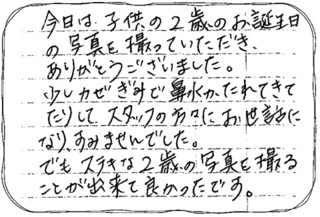 今日は、子供の2歳のお誕生日
の写真を撮っていただき、
ありがとうございました。
少しカゼぎみで鼻水がたれてきて
たりして、スタッフの方々にお世話に
なり、すみませんでした。
でもステキな2歳の写真を撮る
ことが出来て良かったです。